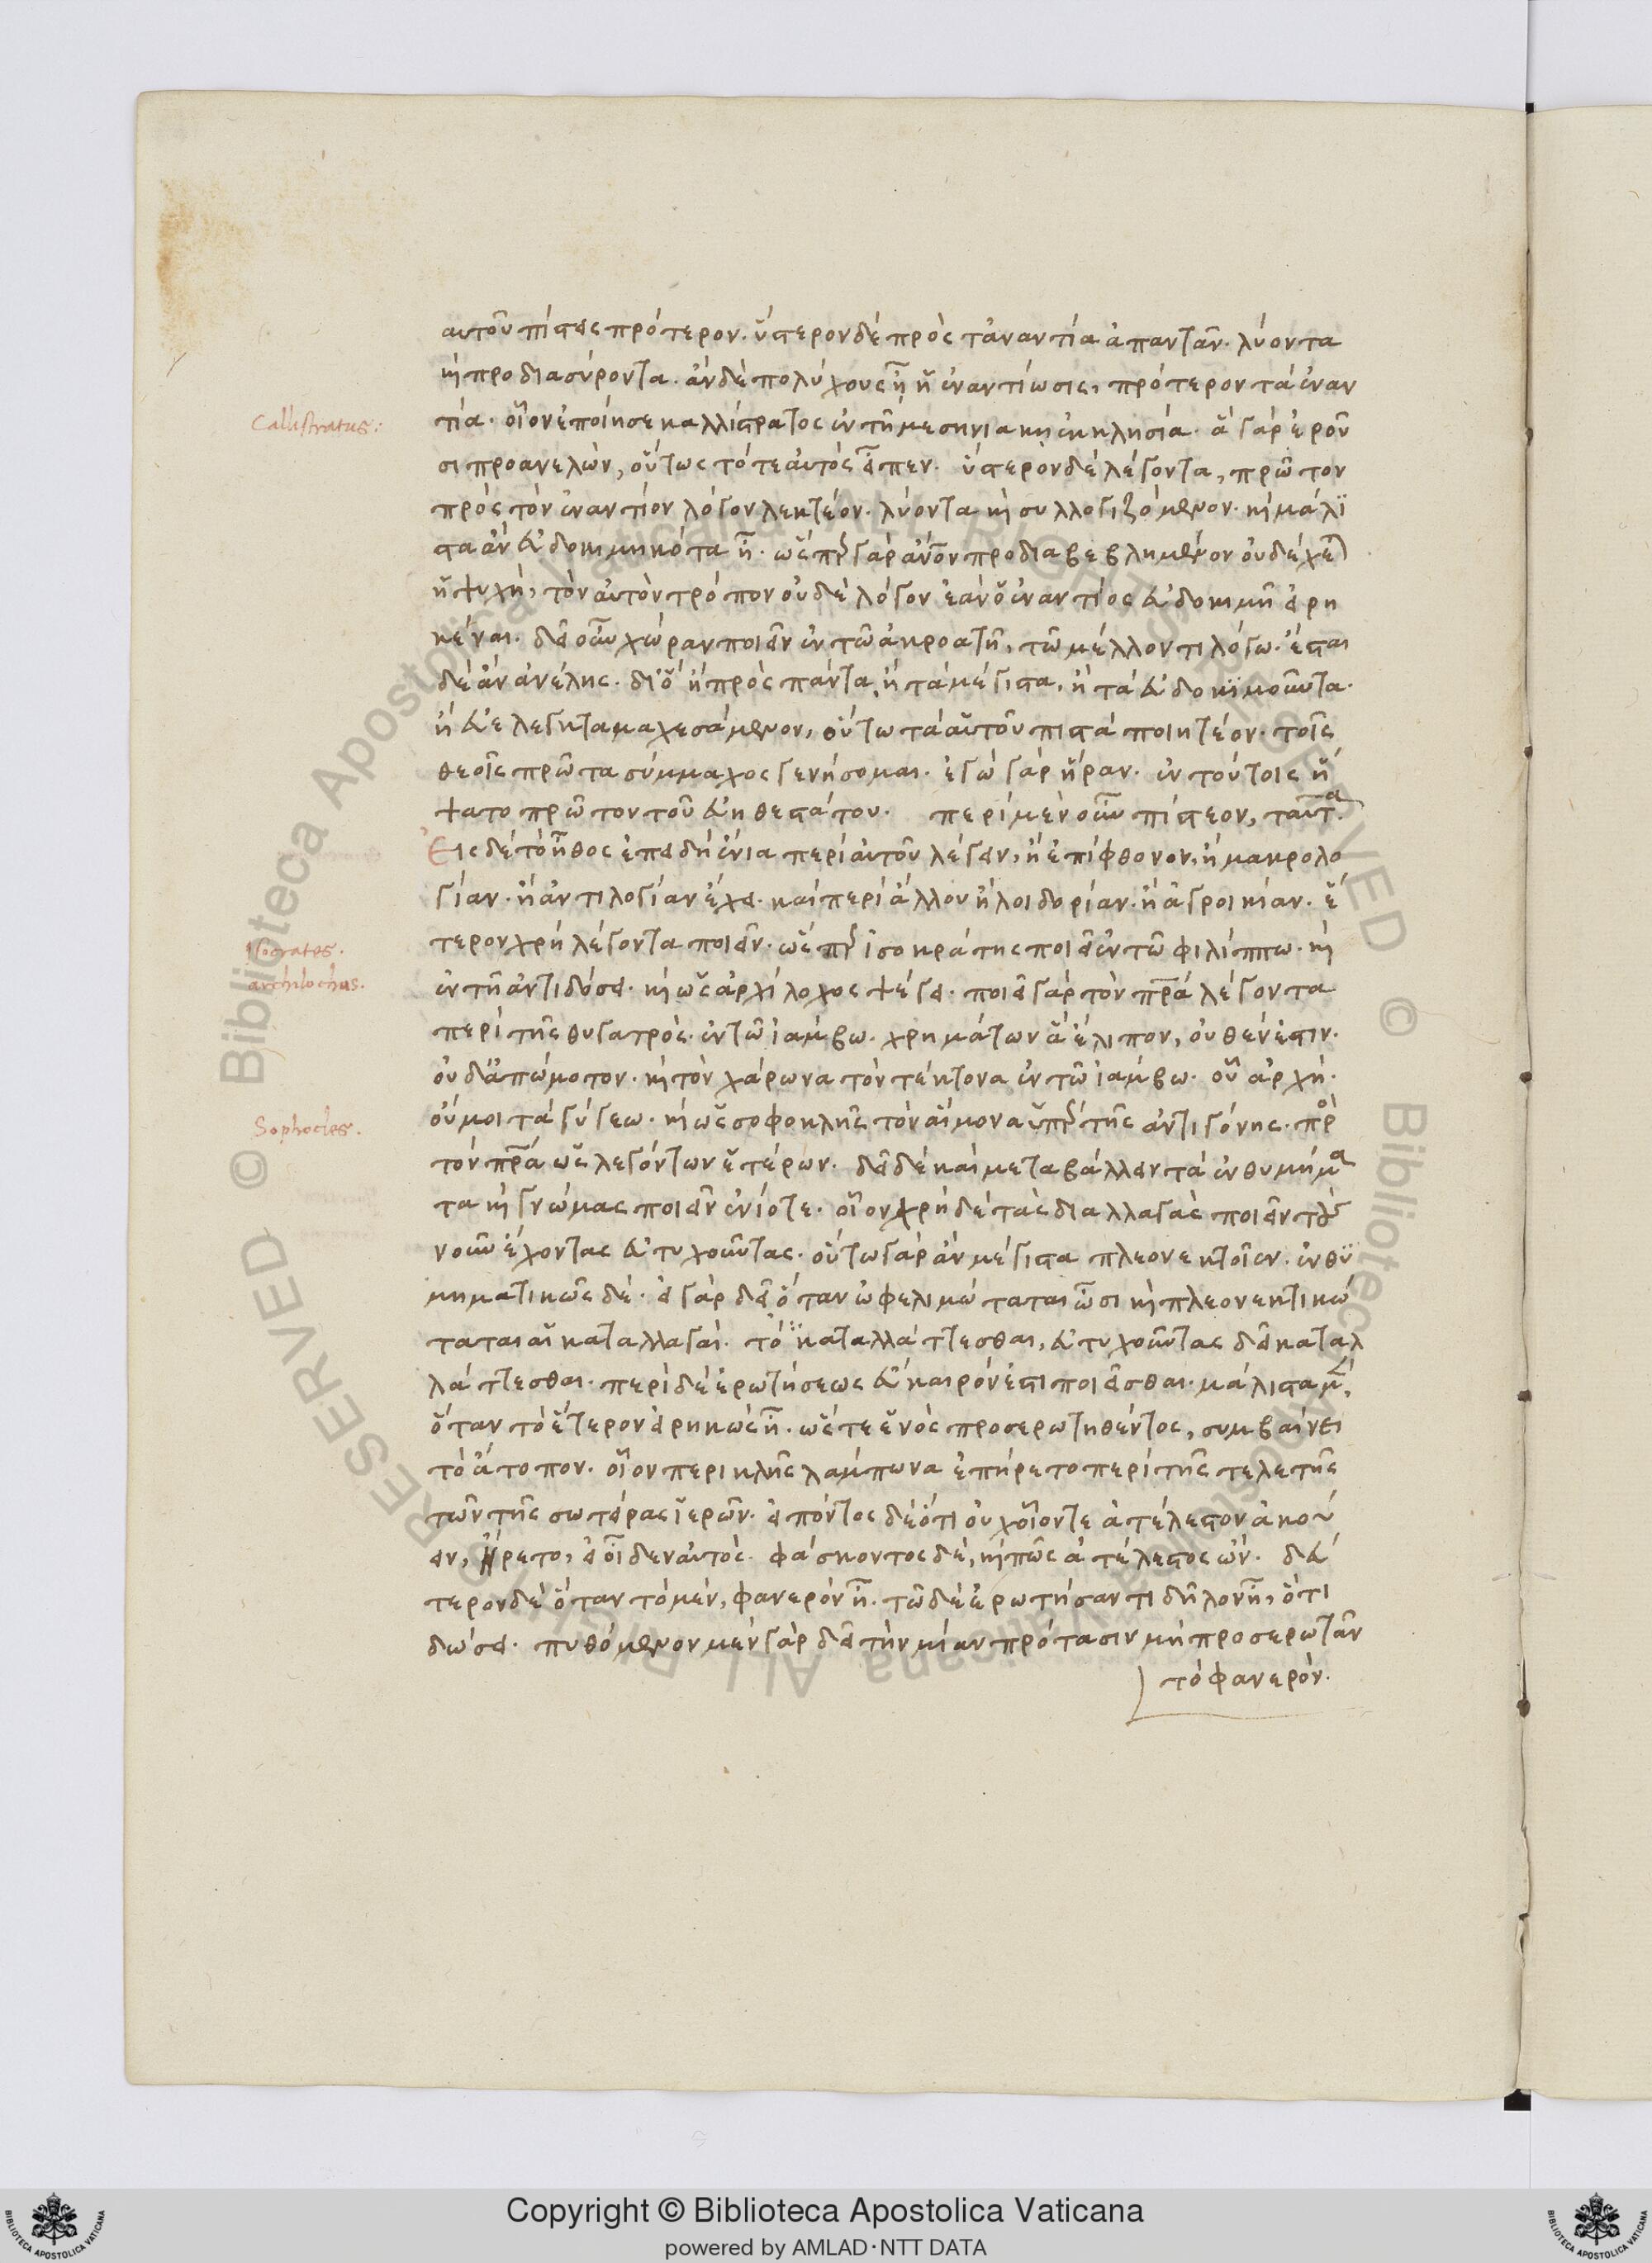 αυτοῦ πίστεις πρότερον. ὕστερον δὲ πρὸς τἀναντία ἀπαντᾶν. λύοντα
καὶ προδιασύροντα. ἂν δὲ πολύχους ᾖ ἡ ἐναντίωσις, πρότερον τὰ ἐναν
Callistratus: τία. οἷον ἐποίησε καλλίστρατος ἐν τῇ μεσηνιακῇ ἐκκλησία. ἃ γὰρ ἐροῦ
σι προανελὼν, οὕτως τότε αὐτὸς εἶπεν. ὕστερον δὲ λέγοντα, πρῶτον
πρὸς τὸν ἐναντίον λόγον λεκτέον. λύοντα καὶ συλλογιζόμενον. καὶ μάλι
στα ἂν εὐδοκιμηκότα ᾖ. ὥσπερ γὰρ ἄνον προδιαβεβλημένον οὐ δέχεται
ἡ ψυχὴ, τὸν αὐτὸν τρόπον οὐδὲ λόγον ἐὰν ὁ ἐναντίος εὐδοκιμῇ εἰρη
κέναι. δεῖ οὖν χώραν ποιεῖν ἐν τῶ ἀκροατῇ, τῶ μέλλοντι λόγω. ἔσται
δὲ ἂν ἀνέλης. διὸ ἢ πρὸς πάντα, ἢ τὰ μέγιστα, ἢ τὰ εὐδοκιμοῦντα.
ἢ εὐέλεγκτα μαχεσάμενον, οὕτω τὰ αὑτοῦ πιστὰ ποιητέον. τοῖς
θεοῖς πρῶτα σύμμαχος γενήσομαι. ἐγὼ γὰρ ἥραν. ἐν τούτοις ἥ
ψατο πρῶτον τοῦ εὐηθεστάτου. περὶ μὲν οὖν πίστεον, ταῦτα.
Εἰς δὲ τὸ ἦθος ἐπειδὴ ἔνια περὶ αὐτοῦ λέγειν, ἢ ἐπίφθονον, ἢ μακρολο
γίαν. ἢ ἀντιλογίαν ἔχει. καὶ περὶ ἄλλου ἢ λοιδορίαν. ἢ ἀγροικίαν. ἕ
Isocrates. τερον χρὴ λέγοντα ποιεῖν. ὥσπερ ἰσοκράτης ποιεῖ ἐν τῶ φιλίππω. καὶ
archilochus. ἐν τῇ ἀντιδόσει. καὶ ὡς ἀρχίλοχος ψέγει. ποιεῖ γὰρ τὸν πρα λέγοντα
περὶ τῆς θυγατρὸς. ἐν τῶ ἰάμβω. χρημάτων ἃ ἔλιπον, οὐθὲν ἔστιν.
οὐδ' ἀπώμοτον. καὶ τὸν χάρωνα τὸν τέκτονα ἐν τῶ ἰάμβω. οὗ ἀρχὴ.
Sophocles. οὔ μοι τὰ γύγεω. καὶ ὡς σοφοκλῆς τὸν αἵμονα ὑπὲρ τῆς ἀντιγόνης. πρὸ
τὸν πρα ὡς λεγόντων ἑτέρων. δεῖ δὲ καὶ μεταβάλλειν τὰ ἐνθυμήμα
τα καὶ γνώμας ποιεῖν ἐνίοτε. οἷον χρὴ δὲ τὰς διαλλαγὰς ποιεῖν τοὺς
νοῦν ἔχοντας εὐτυχοῦντας. οὕτω γὰρ ἂν μέγιστα πλεονεκτοῖεν. ἐνθυ
μηματικῶς δὲ. εἰ γὰρ δεῖ ὅταν ὠφελιμώταται ὦσι καὶ πλεονεκτικώ
ταται αἱ καταλλαγαὶ. τὸ καταλλάττεσθαι, εὐτυχοῦντας δεῖ καταλ
λάττεσθαι. περὶ δὲ ἐρωτήσεως εὔκαιρόν ἐστι ποιεῖσθαι. μάλιστα μὲν,
ὅταν τὸ ἕτερον εἰρηκὼς ᾖ. ὥστε ἑνὸς προσερωτηθέντος, συμβαίνει
τὸ ἄτοπον. οἷον περικλῆς λάμπωνα ἐπήρετο περὶ τῆς τελετῆς
τῶν τῆς σωτείρας ἱερῶν. εἰπόντος δὲ ὅτι οὐχ οἷόν τε ἀτέλεστον ἀκού
ειν, ἤρετο, εἰ οἶδεν αὐτὸς. φάσκοντος δὲ, καὶ πῶς ἀτέλεστος ὢν. δεύ
τερον δὲ ὅταν τὸ μὲν, φανερὸν ᾖ. τῶ δὲ ἐρωτήσαντι δῆλον ᾖ, ὅτι
δώσει. πυθόμενον μὲν γὰρ δεῖ τὴν μίαν πρότασιν μὴ προσερωτᾶν
τὸ φανερὸν.
Copyright © Biblioteca Apostolica Vaticana
powered by AMLAD·NTT DATA